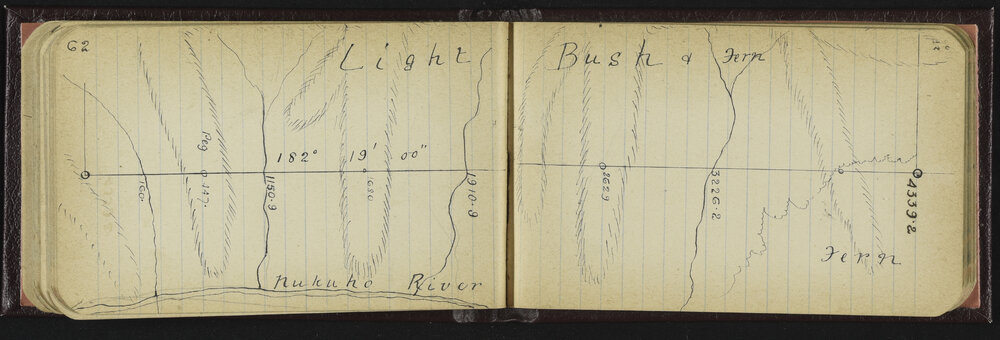 62
Light Bush & Fern
182° 19' 00"
Peg
160.
1150.9
1680
1910.9
2629
3226.2
4339.2
Fern
Nukuho River